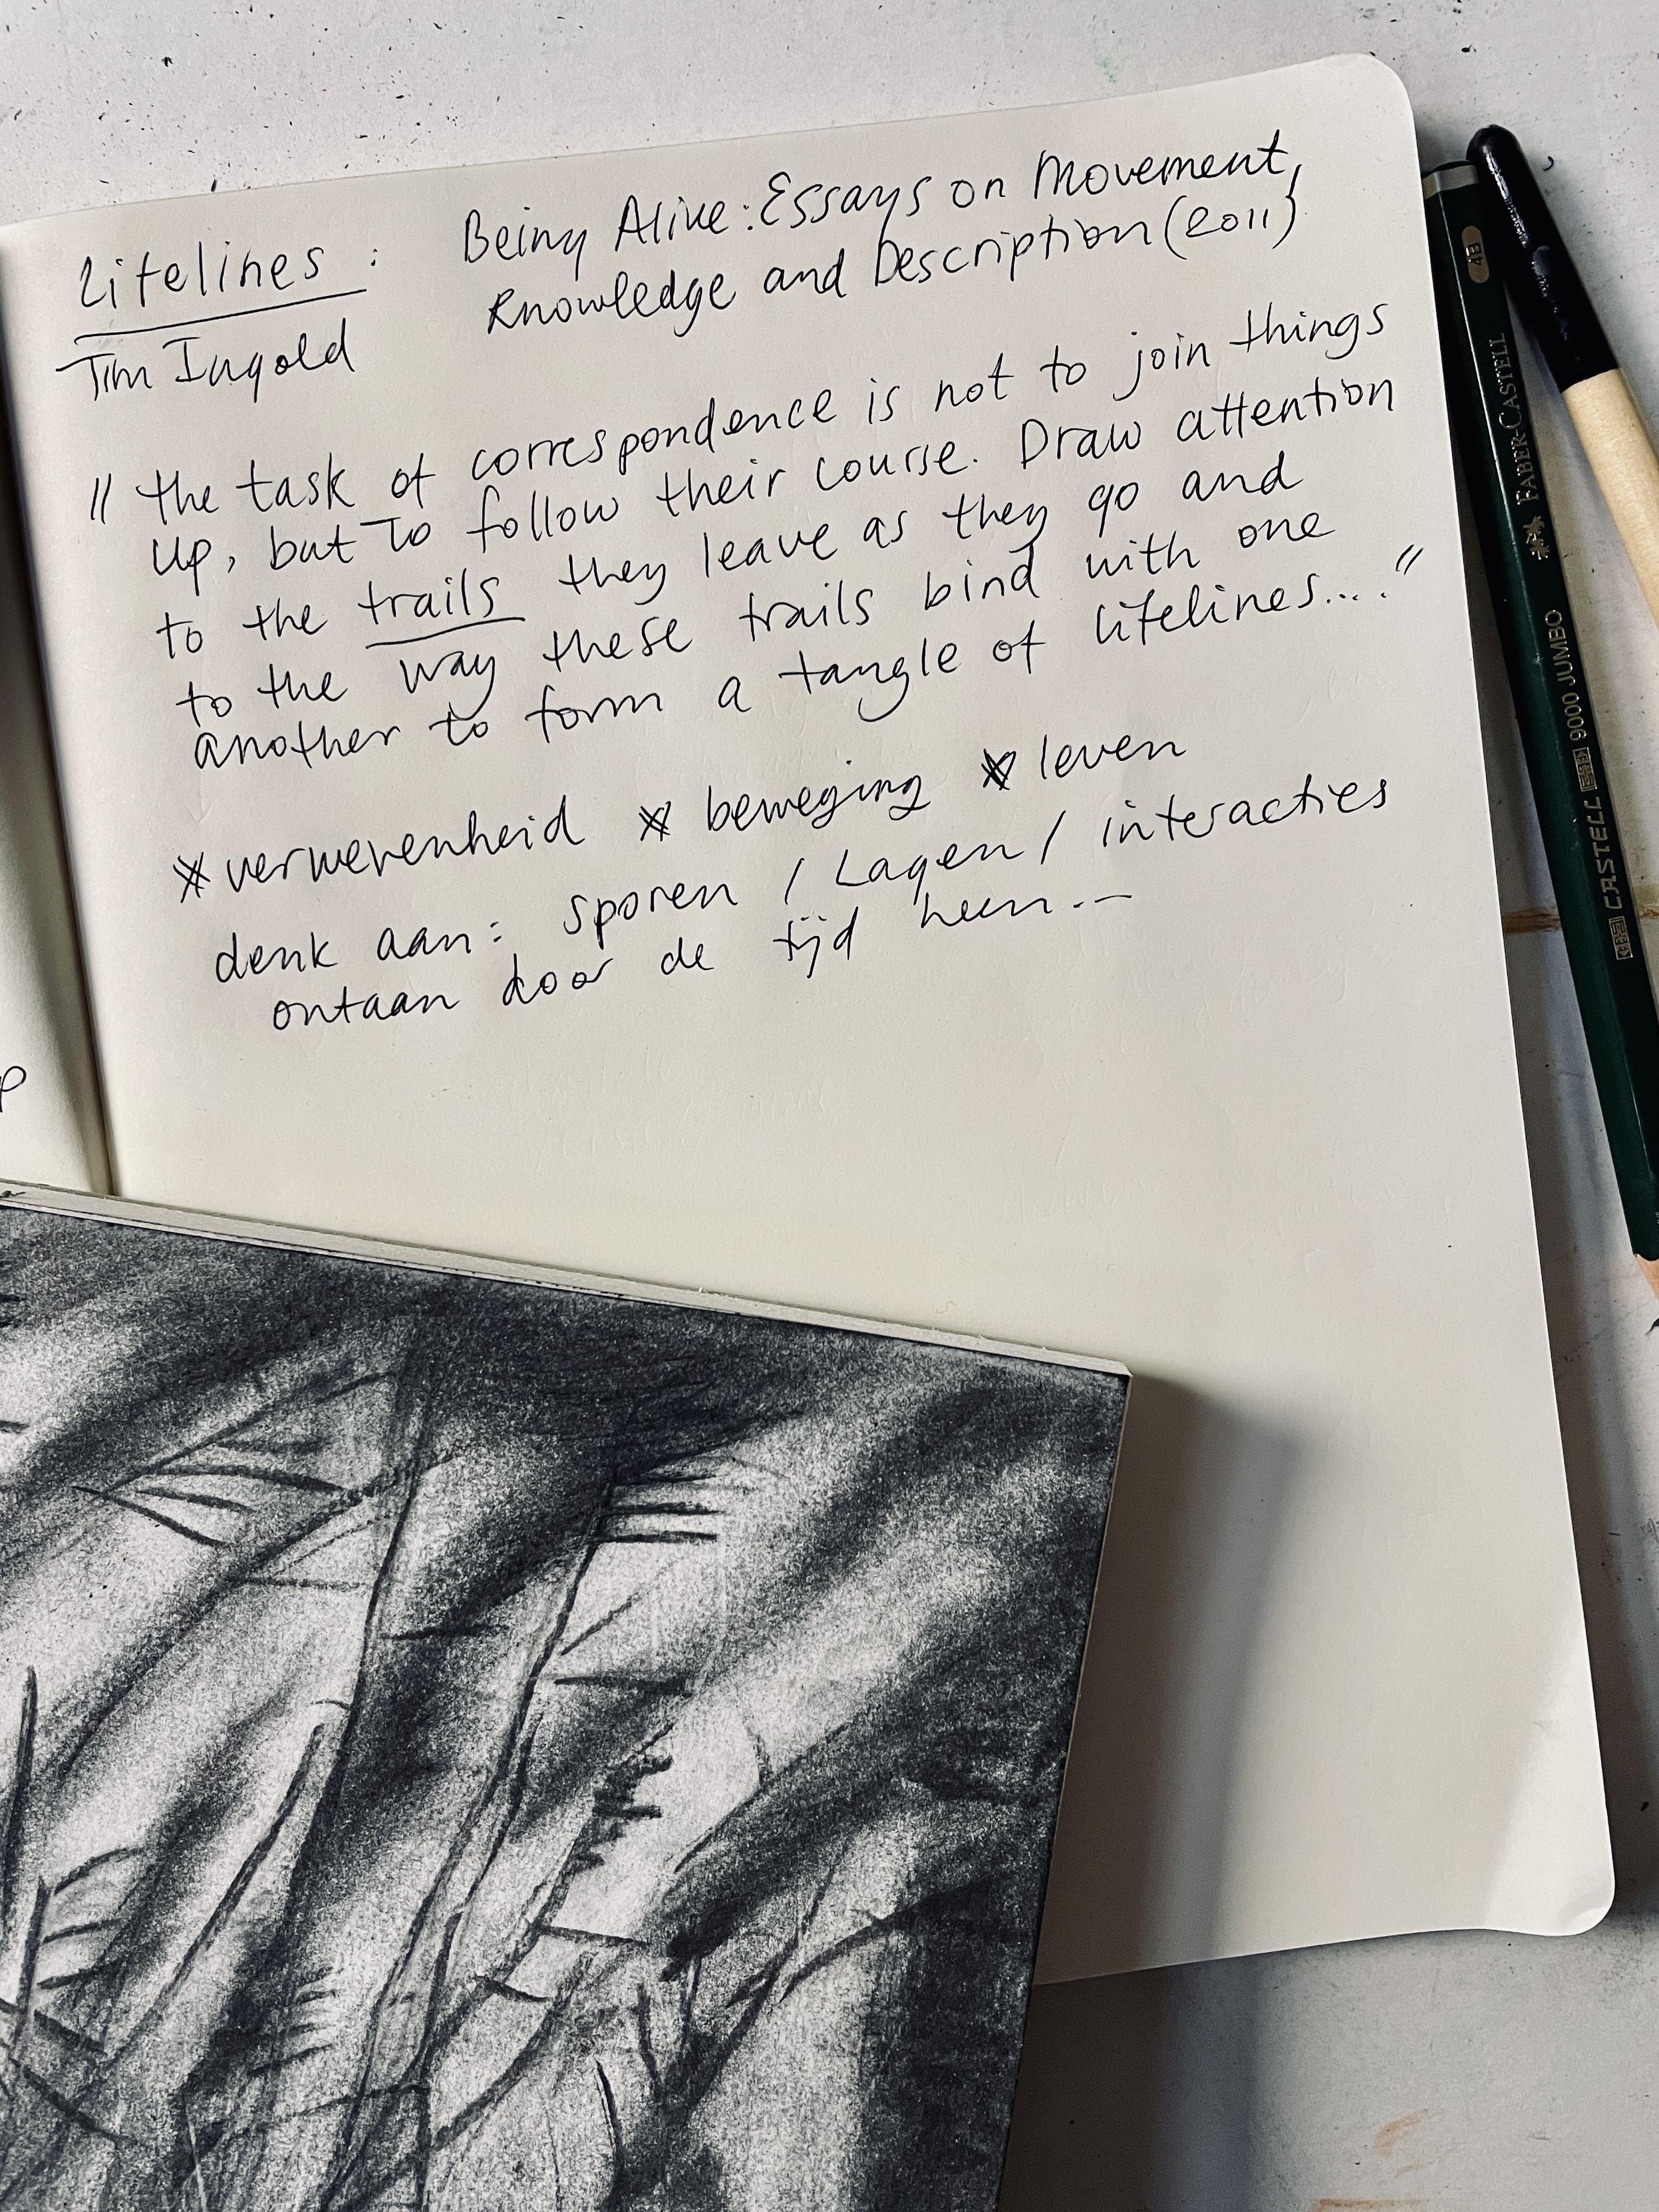 Lifelines : Being Alive: Essays on Movement,
Knowledge and Description (2011)
Tim Ingold
"the task of correspondence is not to join things
up, but to follow their course. Draw attention
to the trails they leave as they go and
to the way these trails bind with one
another to form a tangle of lifelines...."
* verwevenheid * beweging * leven
denk aan: sporen / Lagen / interacties
ontaan door de tijd heen...
4B
FABER-CASTELL
CASTELL 9000 JUMBO